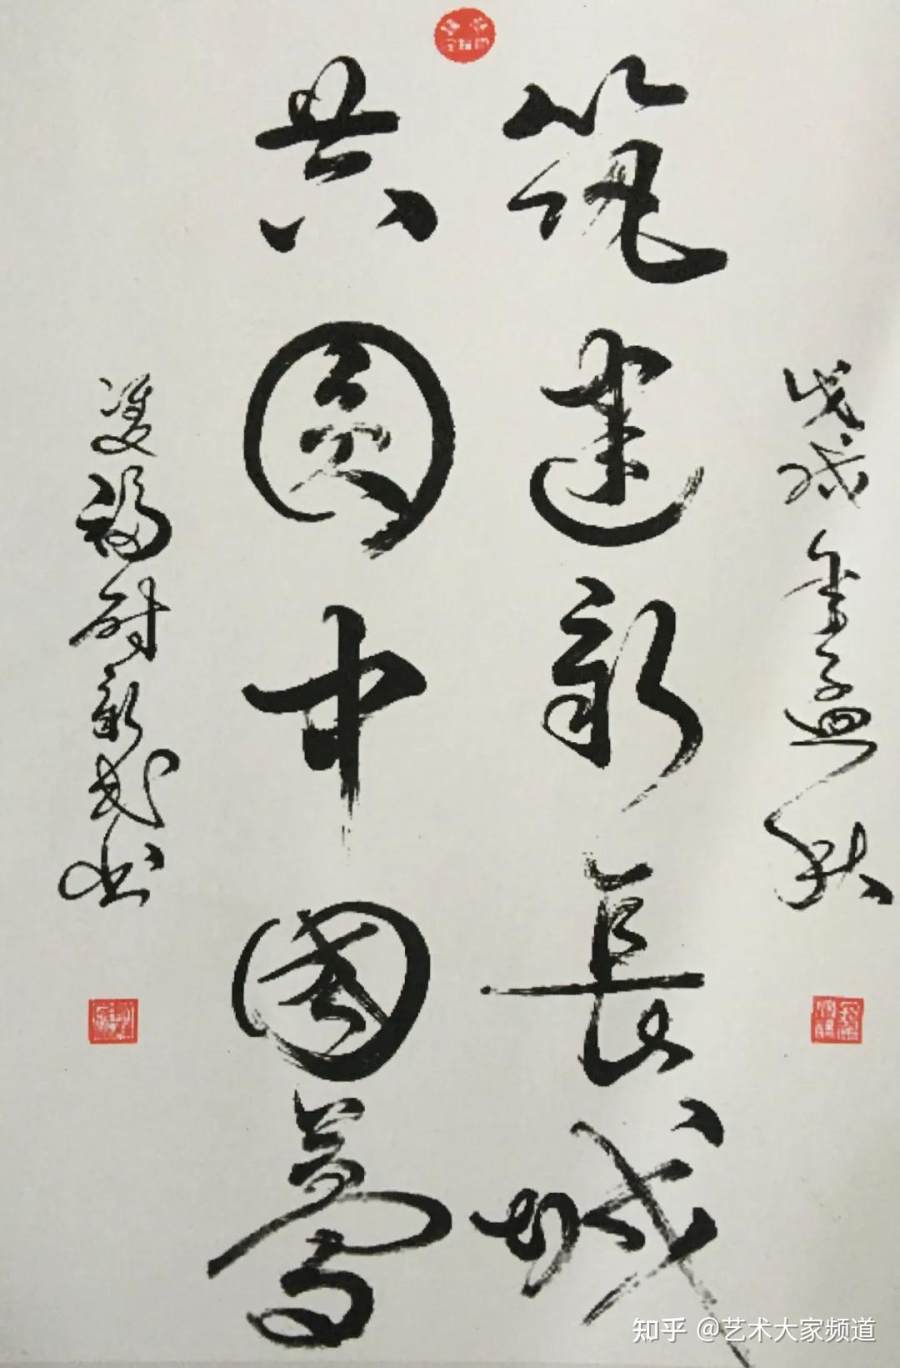 戊戌年孟秋
筑建新長城
共圆中國夢
雙福新书
知乎 @艺术大家频道